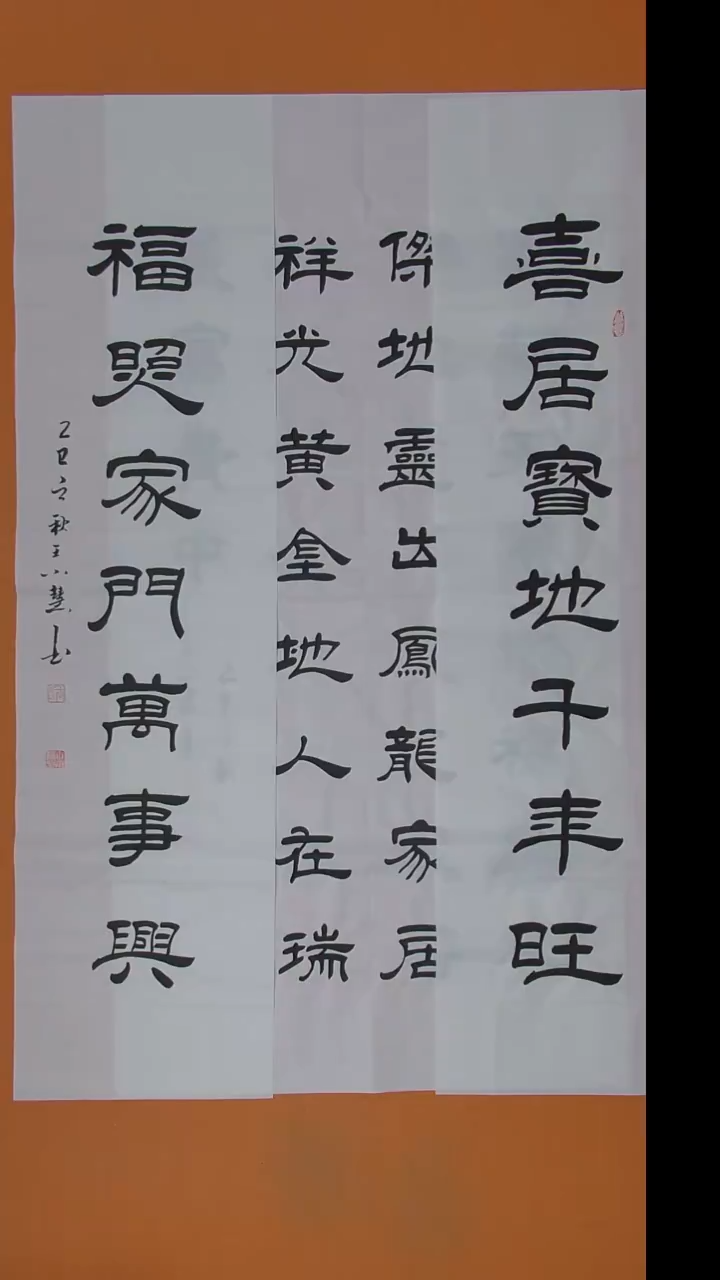 喜居寶地千年旺
傑地靈出鳳龍家居
祥光黄金地人在瑞
福照家門萬事興
乙巳立秋王小慧书